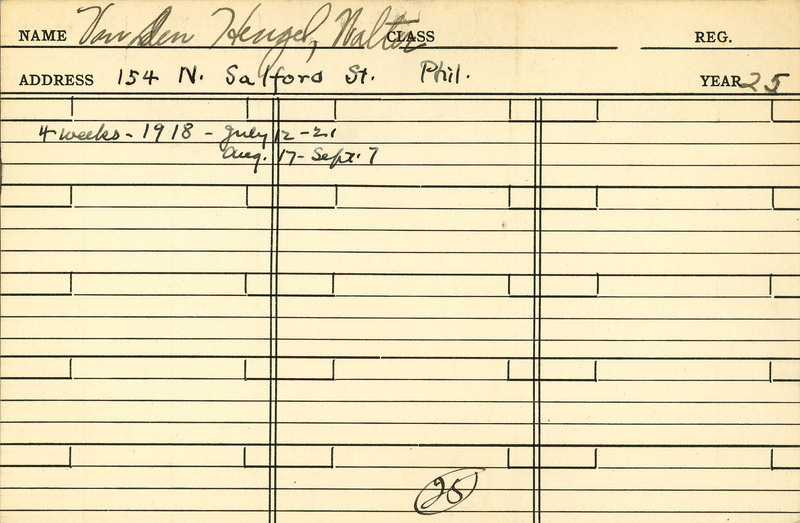 NAME Van Den Hengel, Walter CLASS REG.
ADDRESS 154 N. Salford St. Phil. YEAR 25
4 weeks - 1918 - July 12 - 21
Aug. 17 - Sept. 7
25